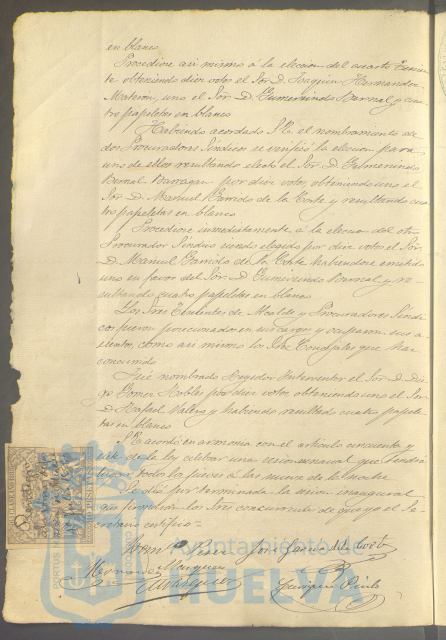 en blanco.
Procediose asi mismo á la eleccion del cuarto Tenien-
te obteniendo diez votos el Sor. D. Joaquin Hernandez
Materon, uno el Sor. D. Gumersindo Bernal y cua-
tro papeletas en blanco
Habiendo acordado S. E. el nombramiento de
dos Procuradores Sindicos se verificó la eleccion para
uno de ellos resultando electo el Sor. D. Gumersindo
Bernal Barragan por diez votos, obteniendo uno el
Sor. D. Manuel Garrido de la Corte y resultando cua-
tro papeletas en blanco
Procediose inmediatamente á la eleccion del otro
Procurador Sindico siendo elegido por diez votos el Sor.
D. Manuel Garrido de la Corte habiendose emitido
uno en favor del Sor. D. Gumersindo Bernal y re-
sultando cuatro papeletas en blanco
Los Sres. Tenientes de Alcalde y Procuradores Sindi-
cos fueron posesionados en sus cargos y ocuparon sus a-
sientos, como asi mismo los Sres. Concejales que han
concurrido.
Fué nombrado Regidor Interventor el Sor. D. Die-
go Gomez Robles por diez votos, obteniendo uno el Sor.
D. Rafael Valero y habiendo resultado cuatro papele-
tas en blanco
Se acordó en armonia con el articulo cincuenta y
siete de la ley celebrar una sesion semanal que tendrá
lugar todos los jueves á las nueve de la noche
Se dió por terminada la sesion inaugural
que firmarán los Sres. concurrentes de que yo el Se-
cretario certifico=
José Garcia de la Corte
Hernandez
Ayuntamiento de
HUELVA
PORTUS